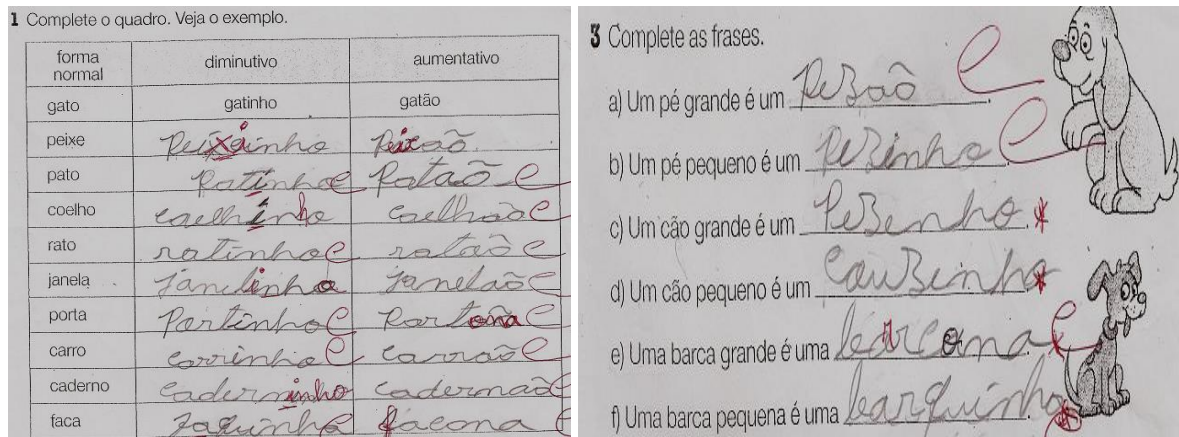 1 Complete o quadro. Veja o exemplo.
forma normal diminutivo aumentativo
gato gatinho gatão
peixe Peixinho Peixão
pato Patinho Pataõ
coelho coelhinho coelhaõ
rato ratinho rataõ
janela Janelinha Janelaõ
porta Portinha Portona
carro carrinho carraõ
caderno caderninho cadernaõ
faca Faquinha facona
3 Complete as frases.
a) Um pé grande é um Pezaõ.
b) Um pé pequeno é um Pezinho.
c) Um cão grande é um Pezenho.
d) Um cão pequeno é um cauzinho.
e) Uma barca grande é uma barcona.
f) Uma barca pequena é uma barquinha.